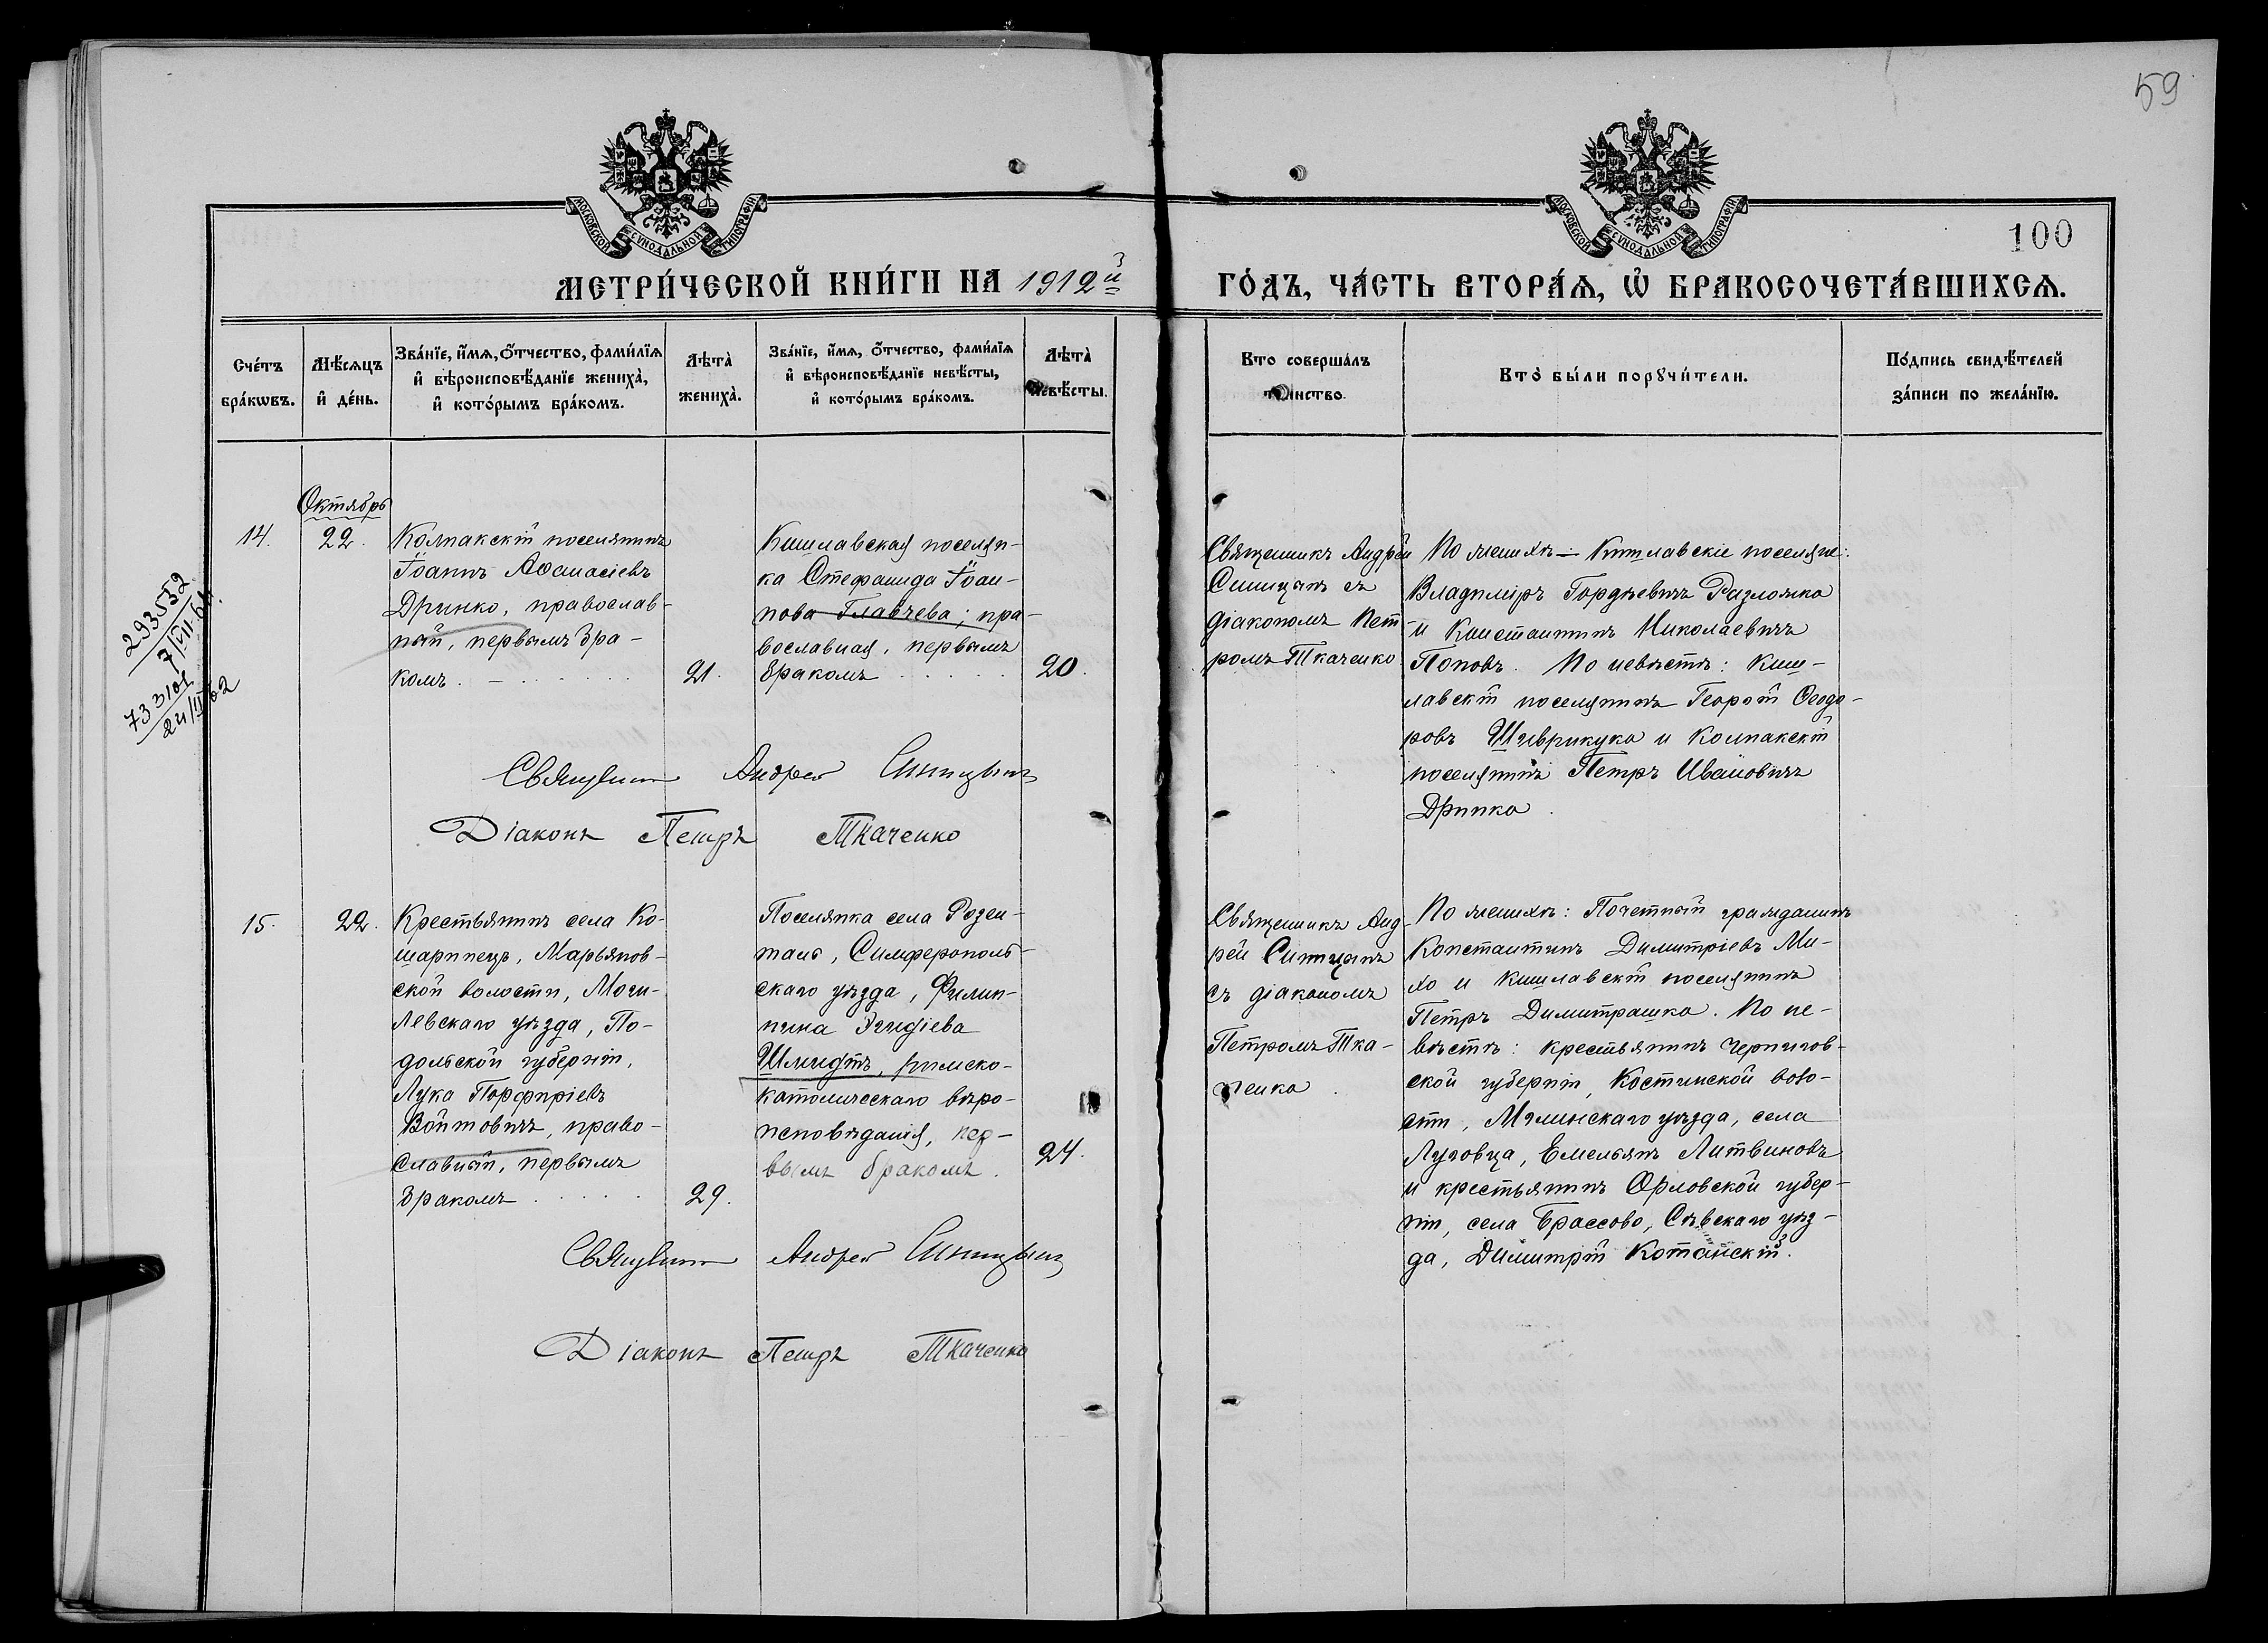 59
МОСКОВСКОЙ СУНОДАЛЬНОЙ ТИПОГРАФІИ
МОСКОВСКОЙ СУНОДАЛЬНОЙ ТИПОГРАФІИ
100
МЕТРИ́ЧЕСКОЙ КНИ́ГИ НА 1912й ГО́ДЪ, ЧА́СТЬ ВТОРА́Я, Ѽ БРАКОСОЧЕТА́ВШИХСЯ.
Сче́тъ бра́кѡвъ.
Мѣ́сяцъ и҆ де́нь.
Зва́нїе, и҆́мя, о҆́тчество, фами́лїя
и҆ вѣроисповѣ́данїе жениха̀,
и҆ кото́рымъ бра́комъ.
Лѣта̀ жениха̀.
Зва́нїе, и҆́мя, о҆́тчество, фами́лїя
и҆ вѣроисповѣ́данїе невѣ́сты,
и҆ кото́рымъ бра́комъ.
Лѣта̀ невѣ́сты.
Кто соверша́лъ таинство.
Кто̀ бы́ли порꙋчи́тели.
По́дпись свидѣ́телей за́писи по жела́нїю.
293532
7/VII-61.
73310
24/II 62
Октябрь
14.
22.
Колпакскій поселянинъ
Іоаннъ Аѳанасіевъ
Дринко, православ-
ный, первымъ бра-
комъ.
21.
Кишлавская поселян-
ка Стефанида Іоан-
нова Главчева; пра-
вославная, первымъ
бракомъ
20.
Священникъ Андрей
Синицынъ съ
діакономъ Пет-
ромъ Ткаченко
По женихѣ – Кишлавскіе поселяне:
Владиміръ Гордѣевичъ Разложко
и Константинъ Николаевичъ
Поповъ. По невѣстѣ: Киш-
лавскій поселянинъ Георгій Ѳеодо-
ровъ Шиврикука и Колпакскій
поселянинъ Петръ Ивановичъ
Дринко.
Священникъ Андрей Синицынъ
Діаконъ Петръ Ткаченко
15.
22.
Крестьянинъ села Ко-
шаринецъ, Марьянов-
ской волости, Моги-
левскаго уѣзда, По-
дольской губерніи,
Лука Порфиріевъ
Войтовичъ, право-
славный, первымъ
бракомъ
29.
Поселянка села Розен-
таль, Симферополь-
скаго уѣзда, Филип-
пина Эгидіева
Шмидтъ, римско-
католическаго вѣро-
исповѣданія, пер-
вымъ бракомъ.
24.
Священникъ Анд-
рей Синицынъ
съ діакономъ
Петромъ Тка-
ченко.
По женихѣ: Почетный гражданинъ
Константинъ Димитріевъ Ми-
хо и Кишлавскій поселянинъ
Петръ Димитрашко. По не-
вѣстѣ: крестьянинъ Чернигов-
ской губерніи, Костинской воло-
сти, Мглинскаго уѣзда, села
Луговца, Емельянъ Литвиновъ
и крестьянинъ Орловской губер-
ніи, села Брассово, Сѣвскаго уѣз-
да, Димитрій Котанскій.
Священникъ Андрей Синицынъ
Діаконъ Петръ Ткаченко